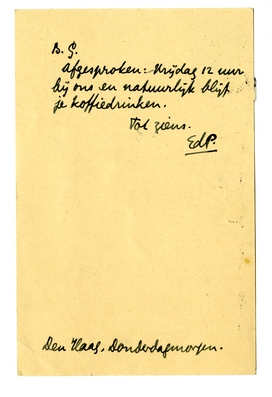 B. G.
Afgesproken: Vrijdag 12 uur
bij ons en natuurlijk blijf
je koffiedrinken.
Tot ziens.
EdP.
Den Haag, Donderdagmorgen.